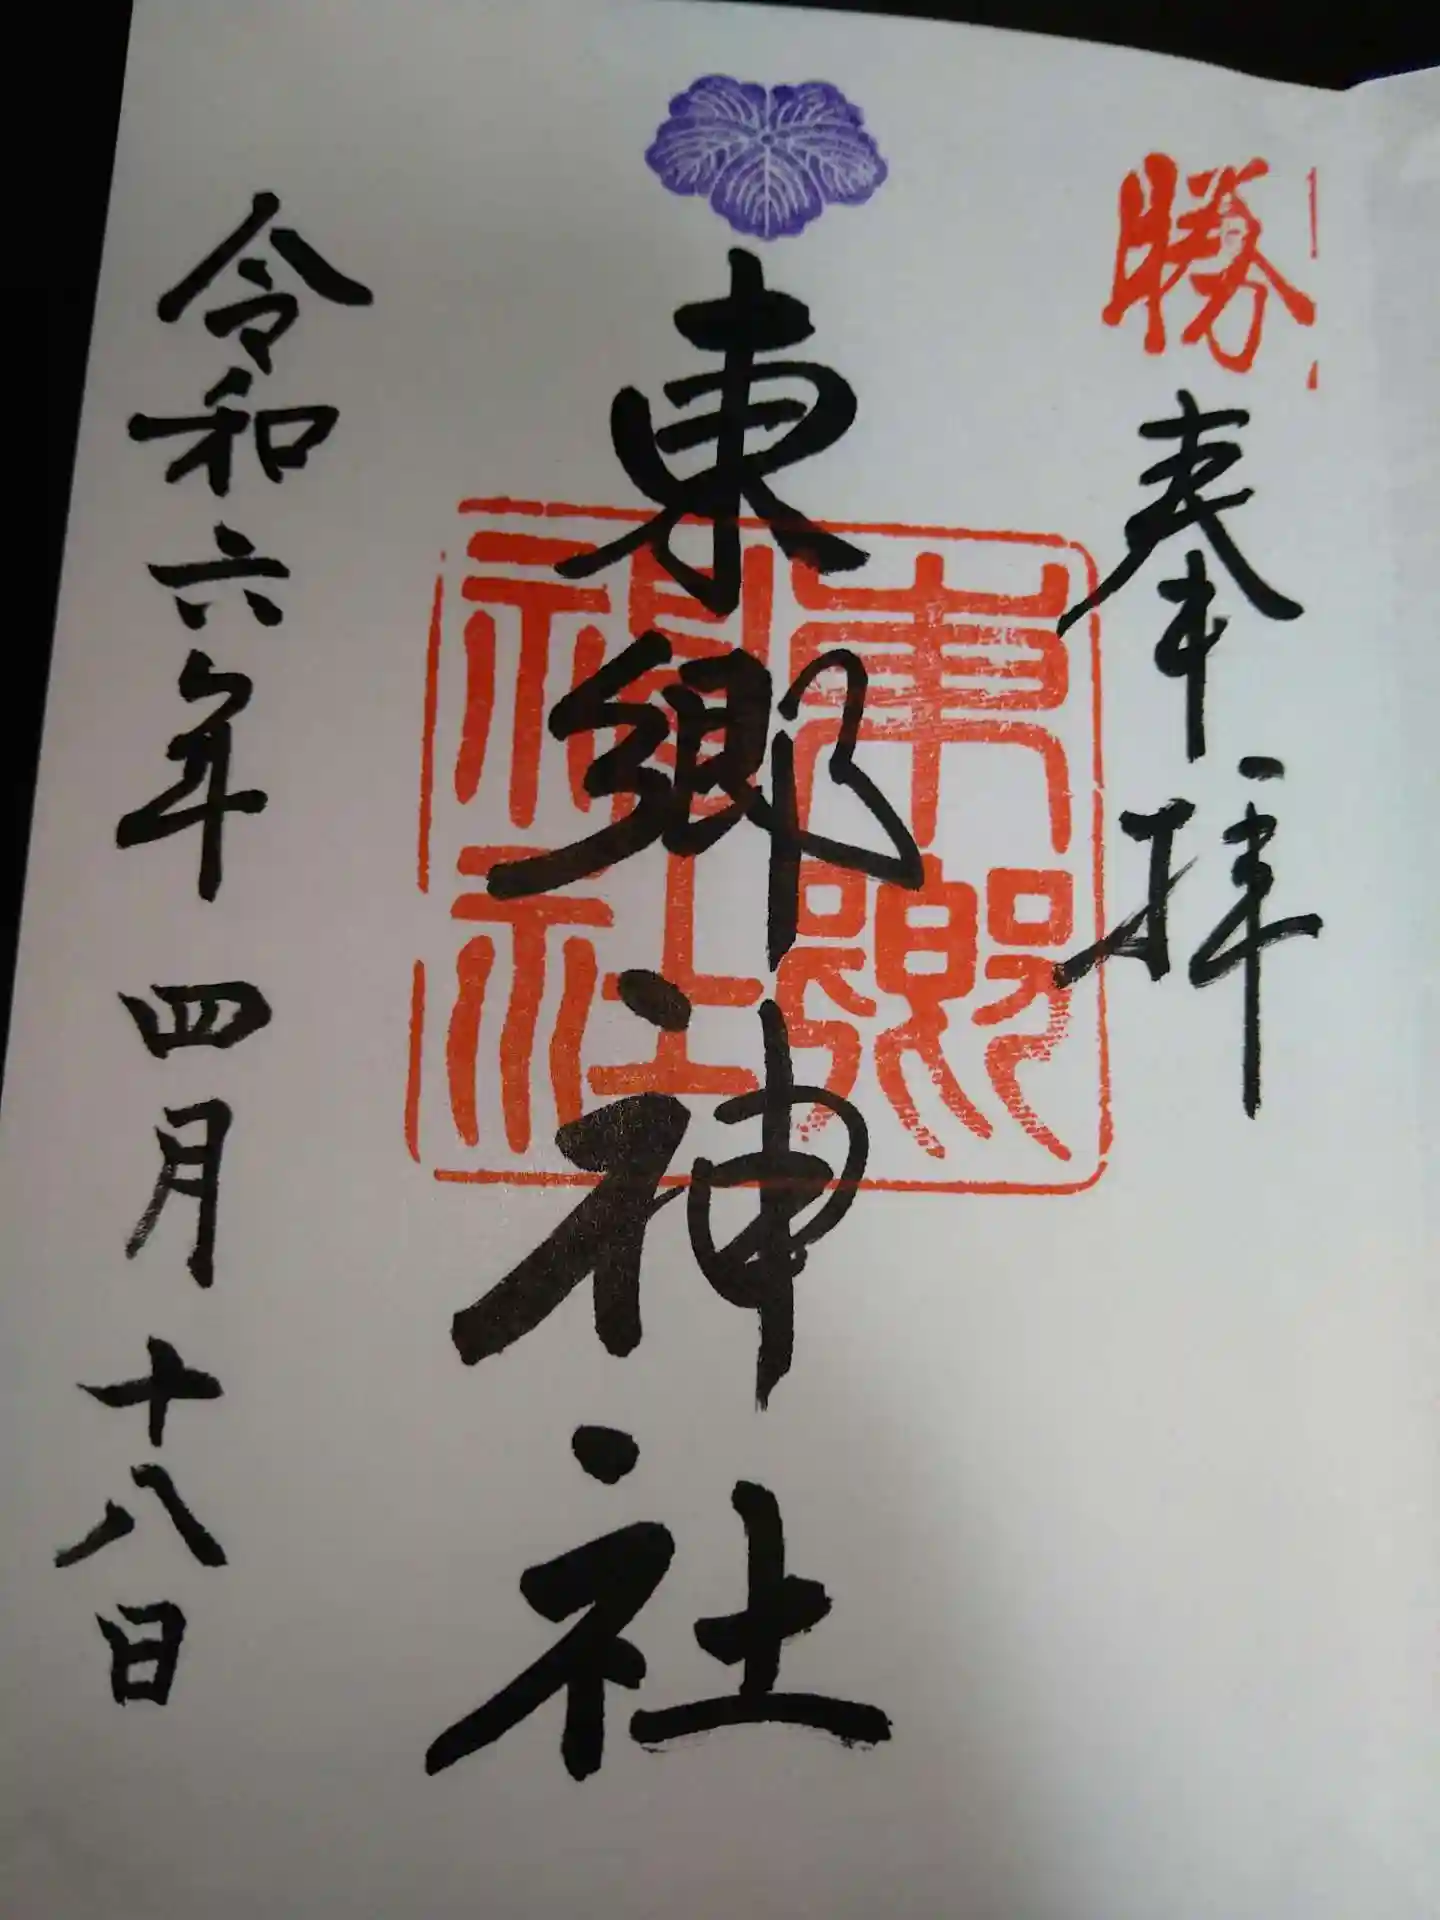 勝
奉拝
東郷神社
東郷
神社
令和六年四月十八日